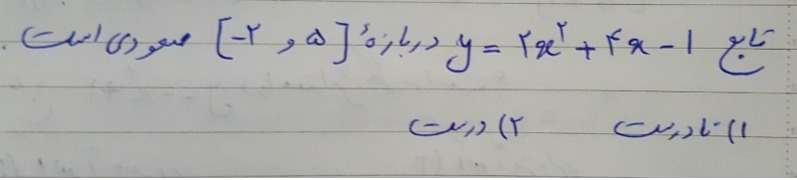 تابع y = ۲x² + ۴x - ۱ در بازهٔ [-۲ و ۵] صعودی است.
۱) نادرست ۲) درست